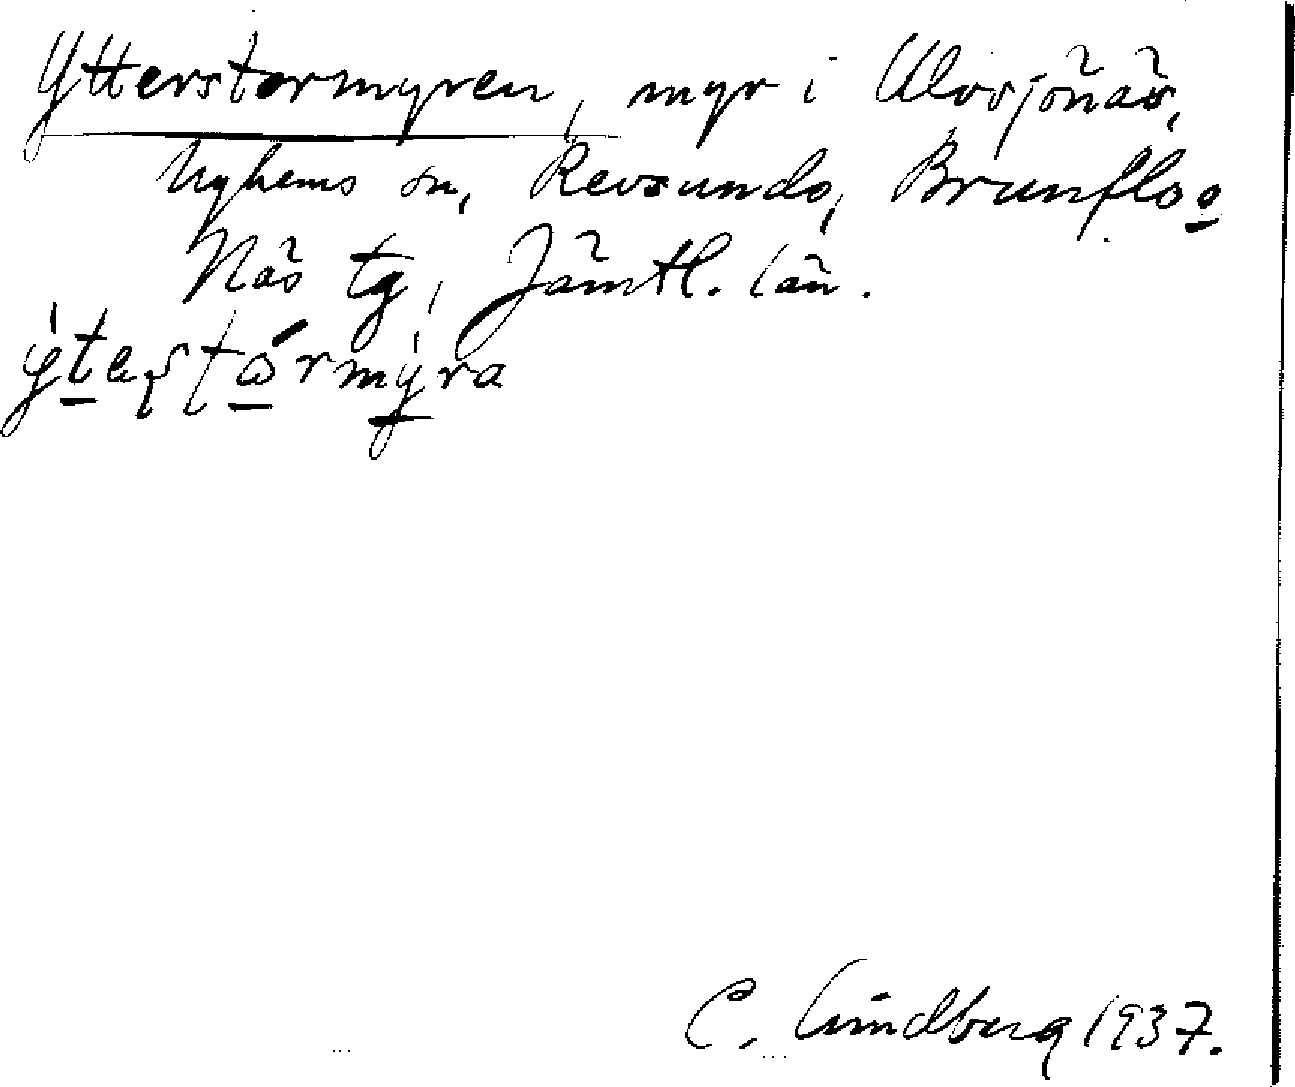 Ytterstormyren, myr i Ulvsjönäs,
Nyhems sn, Revsunds, Brunflo o
Näs tg, Jämtl. län.
C. Lindberg 1937.